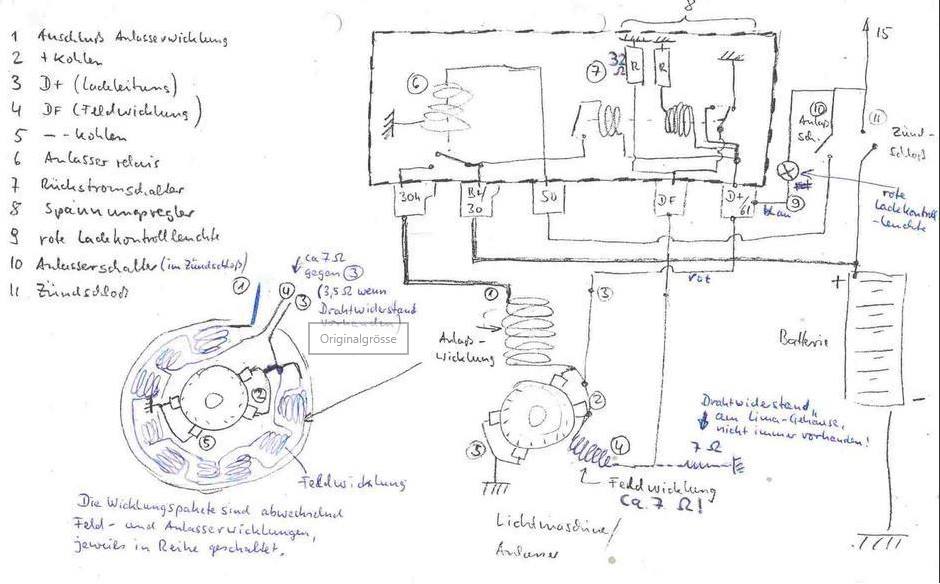 1 Anschluß Anlasserwicklung
2 + Kohlen
3 D+ (Ladeleitung)
4 DF (Feldwicklung)
5 - - Kohlen
6 Anlasser relais
7 Rückstromschalter
8 Spannungsregler
9 rote Ladekontrolleuchte
10 Anlasserschalter (im Zündschloß)
11 Zündschloß
8
15
32 Ω
R
R
7
6
10
Anlaß
sch.
11
Zünd-
schloß
30h
B+/
30
50
DF
D+/
61
blau
9
rote
Ladekontroll
-leuchte
rot
ca 7 Ω
gegen 3
(3,5 Ω wenn
Drahtwiderstand
vorhanden)
Originalgrösse
1
4
3
2
5
1
Anlaß-
wicklung
3
2
5
4
+
Batterie
-
Drahtwiderstand
am Lima-Gehäuse,
nicht immer vorhanden!
7 Ω
Feldwicklung
Feldwicklung
ca. 7 Ω!
Lichtmaschine/
Anlasser
Die Wicklungspakete sind abwechselnd
Feld- und Anlasserwicklungen,
jeweils in Reihe geschaltet.